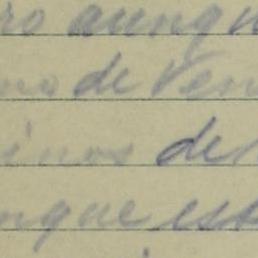 ro aunqu
no de Ven
inos de
nque es